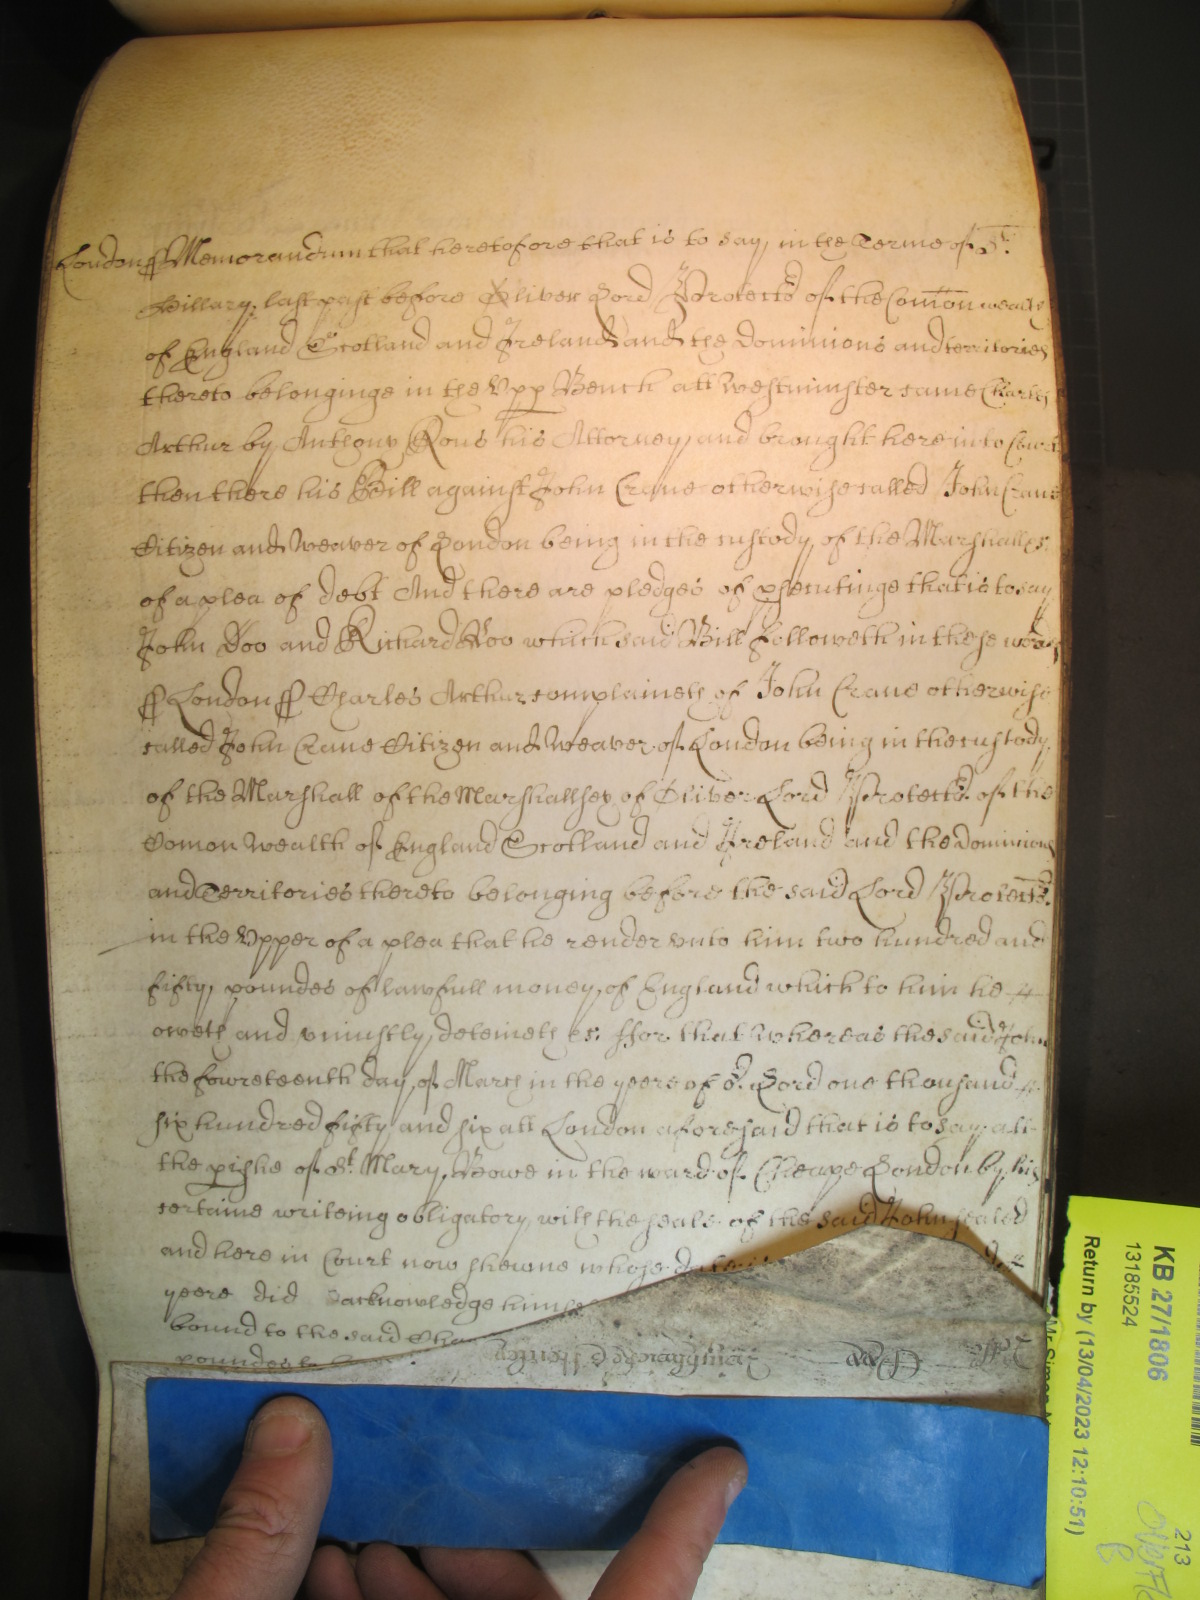 London ss Memorandum that heretofore that is to say in the Terme of St
Hillary last past before Oliver Lord Protector of the Comon wealth
of England Scotland and Ireland and the dominions and territories
thereto belonginge in the Upp Bench att Westminster came Charles
Arthur by Anthony Rous his Attorney and brought here into Court
then there his Bill against John Crane otherwise called John Crane
Citizen and Weaver of London being in the custody of the Marshall &c:
of a plea of debt And there are pledges of psecutinge that is to say
John Doo and Richard Roo which said Bill followeth in these words
ss London ss Charles Arthur complaineth of John Crane otherwise
called John Crane Citizen and Weaver of London being in the custody
of the Marshall of the Marshallsey of Oliver Lord Protector of the
Comon Wealth of England Scotland and Ireland and the dominions
and Territories thereto belonging before the said Lord Protector
in the Upper of a plea that he render unto him two hundred and
fifty poundes of lawfull money of England which to him he
oweth and uniustly deteineth &c: ffor that whereas the said John
the fowreteenth day of March in the yeere of or Lord one thousand
six hundred fifty and six att London aforesaid that is to say att
the pishe of St Mary Bowe in the ward of Cheape London by his
certaine writeing obligatory with the seale of the said John sealed
and here in Court now shewne whose
yeere did acknowledge himse
bound to the said Cha
poundes
KB 27/1806
13185524
Return by (13/04/2023 12:10:51)
213